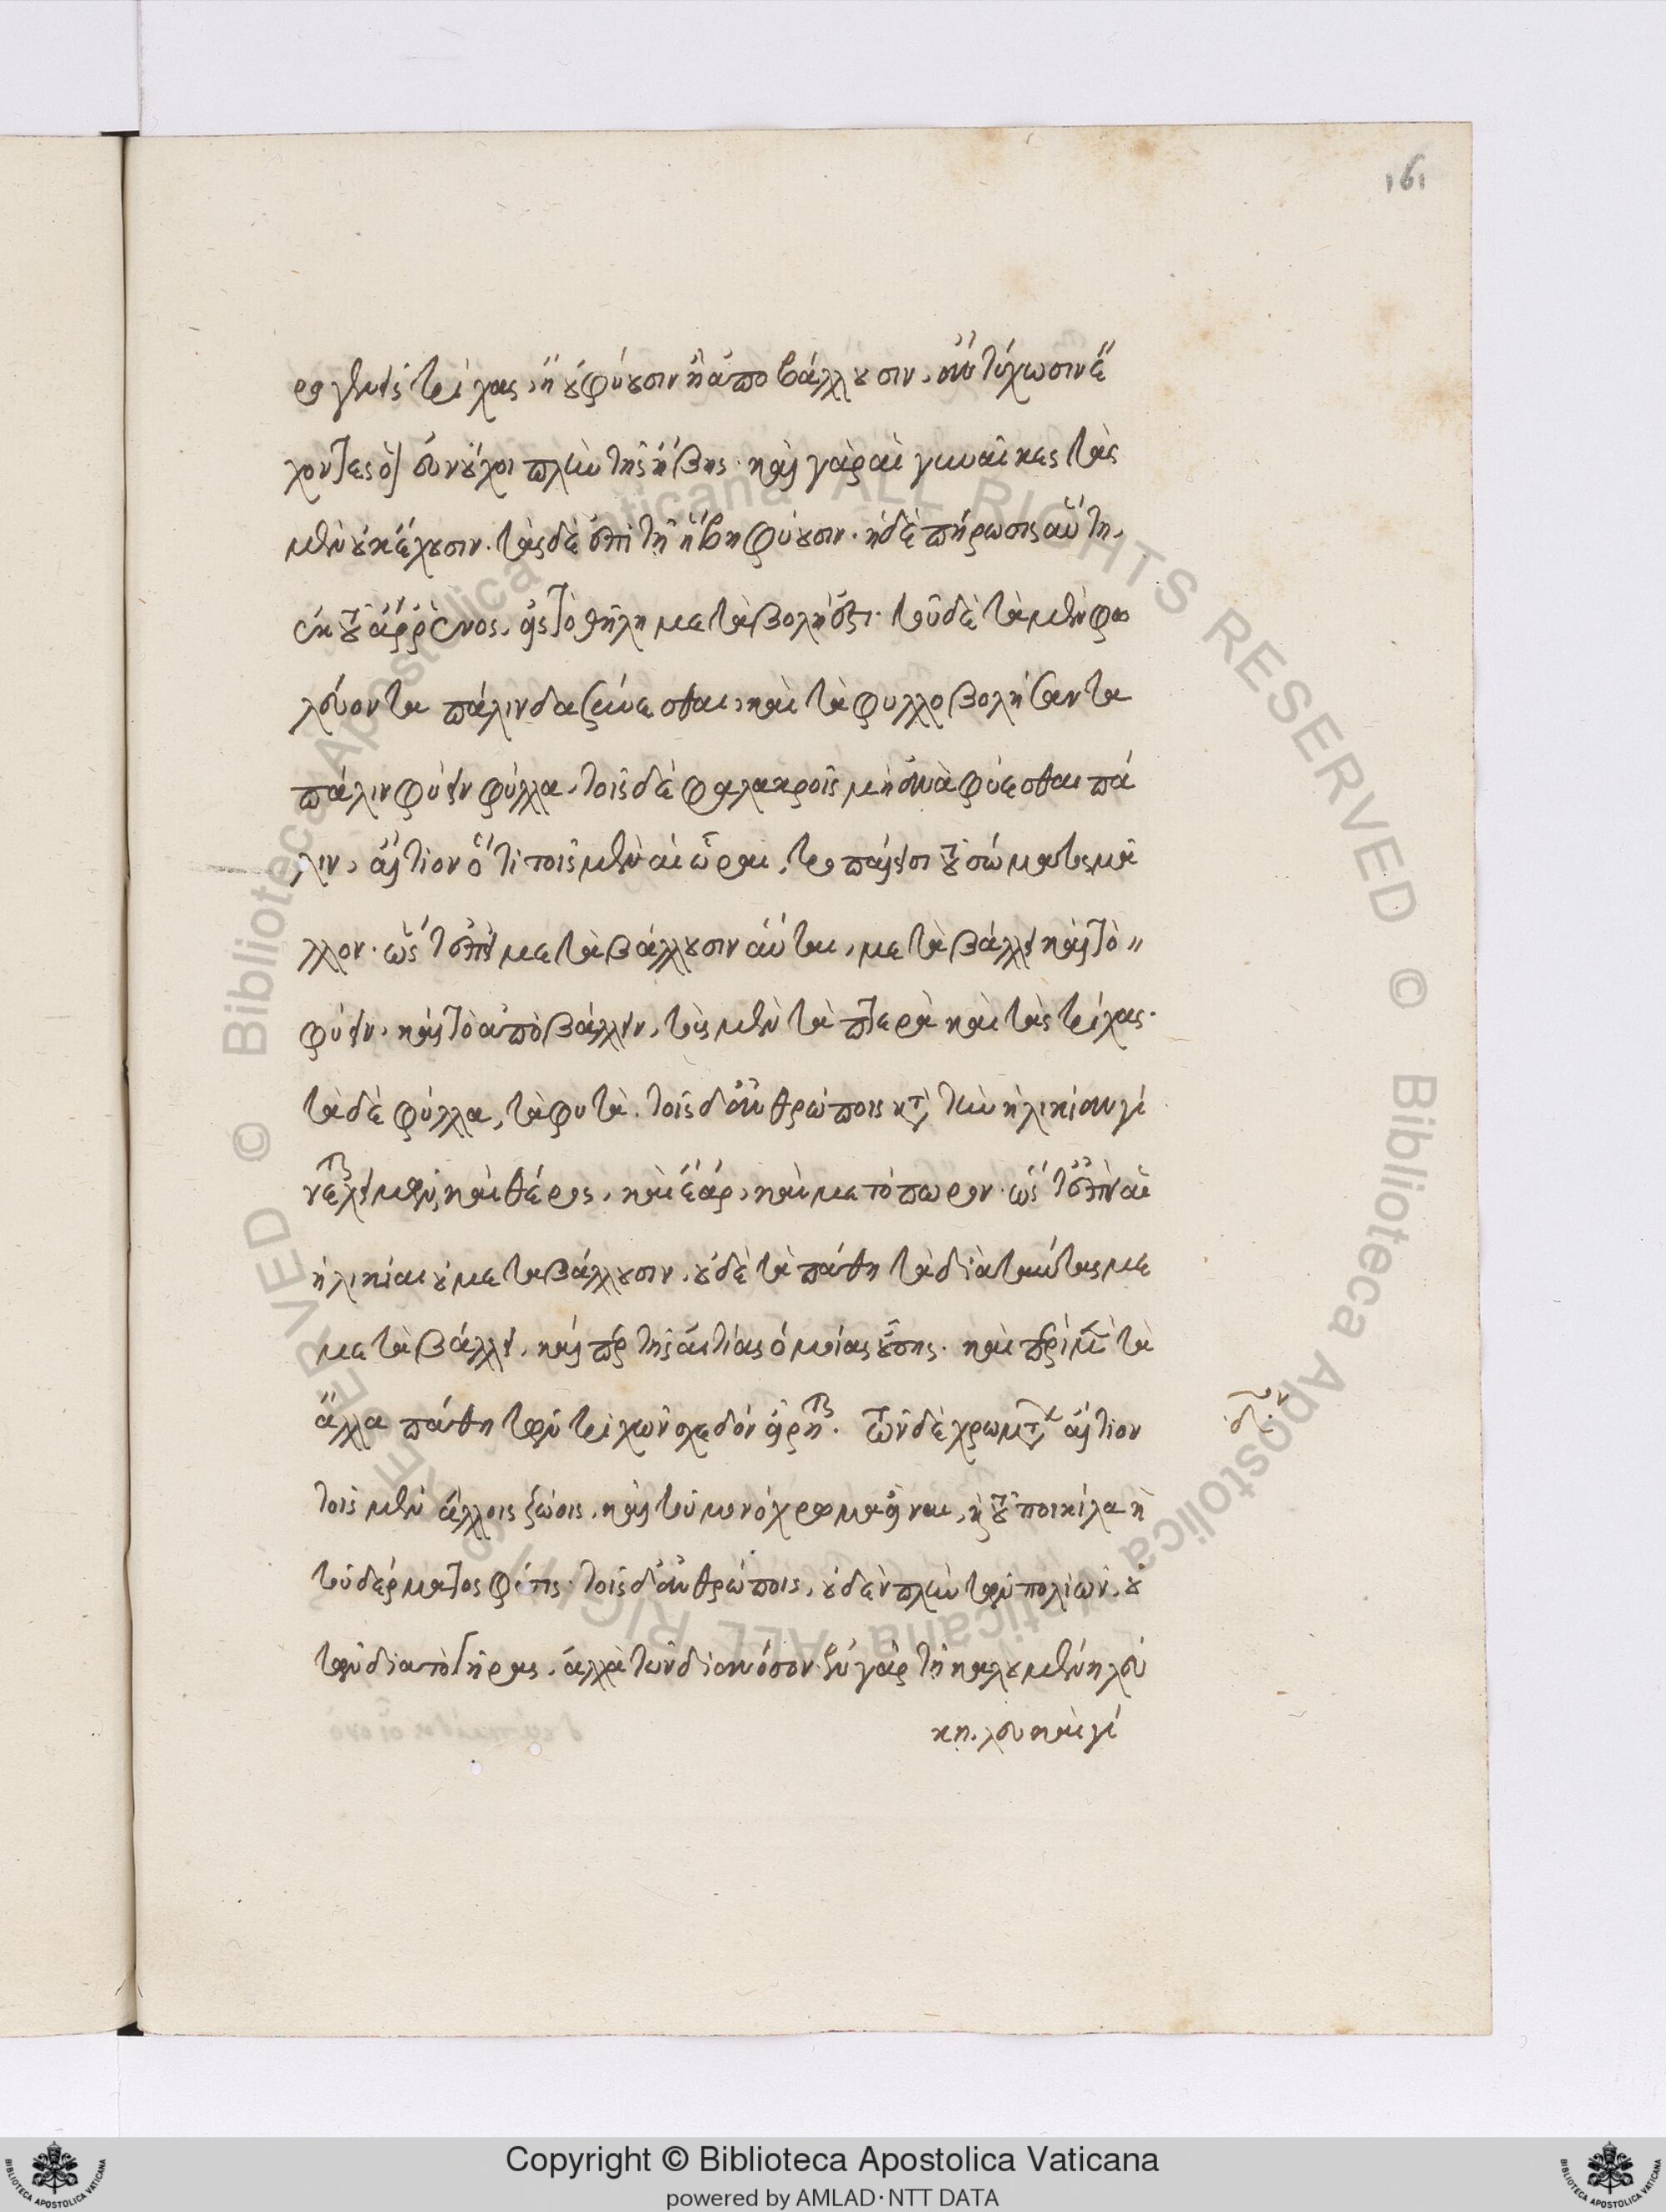 161
ρογενεῖς τρίχας, ἢ οὐ φύουσιν ἢ ἀποβάλλουσιν, ἂν τύχωσιν ἔ
χοντες οἱ εὐνοῦχοι πλὴν τῆς ἥβης. καὶ γὰρ αἱ γυναῖκες τὰς
μὲν οὐκ ἔχουσιν. τὰς δὲ ἐπὶ τῇ ἥβῃ φύουσιν. ἡ δὲ πήρωσις αὕτη,
ἐκ τοῦ ἄρρενος, εἰς τὸ θῆλυ μεταβολή ἐστι. τοῦ δὲ τὰ μὲν φω
λεύοντα πάλιν δασύνεσθαι, καὶ τὰ φυλλοβολήσαντα
πάλιν φύειν φύλλα, τοῖς δὲ φαλακροῖς μὴ ἀναφύεσθαι πά
λιν, αἴτιον ὅτι τοῖς μὲν αἱ ὧραι, τροπαί εἰσι τοῦ σώματος μᾶ
λλον. ὥστ' ἐπεὶ μεταβάλλουσιν αὗται, μεταβάλλει καὶ τὸ
φύειν. καὶ τὸ ἀποβάλλειν, τοῖς μὲν τὰ πτερὰ καὶ τὰς τρίχας.
τὰ δὲ φύλλα, τὰ φυτά. τοῖς δ' ἀνθρώποις κατὰ τὴν ἡλικίαν γί
νεται χειμὼν καὶ θέρος, καὶ ἔαρ, καὶ μετόπωρον. ὥστ' ἐπεὶ αἱ
ἡλικίαι οὐ μεταβάλλουσιν. οὐδὲ τὰ πάθη τὰ διὰ ταύτας με
μεταβάλλει, καίπερ τῆς αἰτίας ὁμοίας οὔσης. καὶ περὶ μὲν τὰ
ἄλλα πάθη τῶν τριχῶν σχεδὸν εἴρηται. τῶν δὲ χρωμάτων αἴτιον
τοῖς μὲν ἄλλοις ζώοις, καὶ τοῦ μονόχροα εἶναι, καὶ τοῦ ποικίλα ἡ
τοῦ δέρματος φύσις. τοῖς δ' ἀνθρώποις, οὐδὲν πλὴν τῶν πολιῶν, οὐ
τῶν διὰ τὸ γῆρας, ἀλλὰ τῶν διὰ νόσον. ἐν γὰρ τῇ καλουμένῃ λεύ
κῃ. λευκαὶ γί